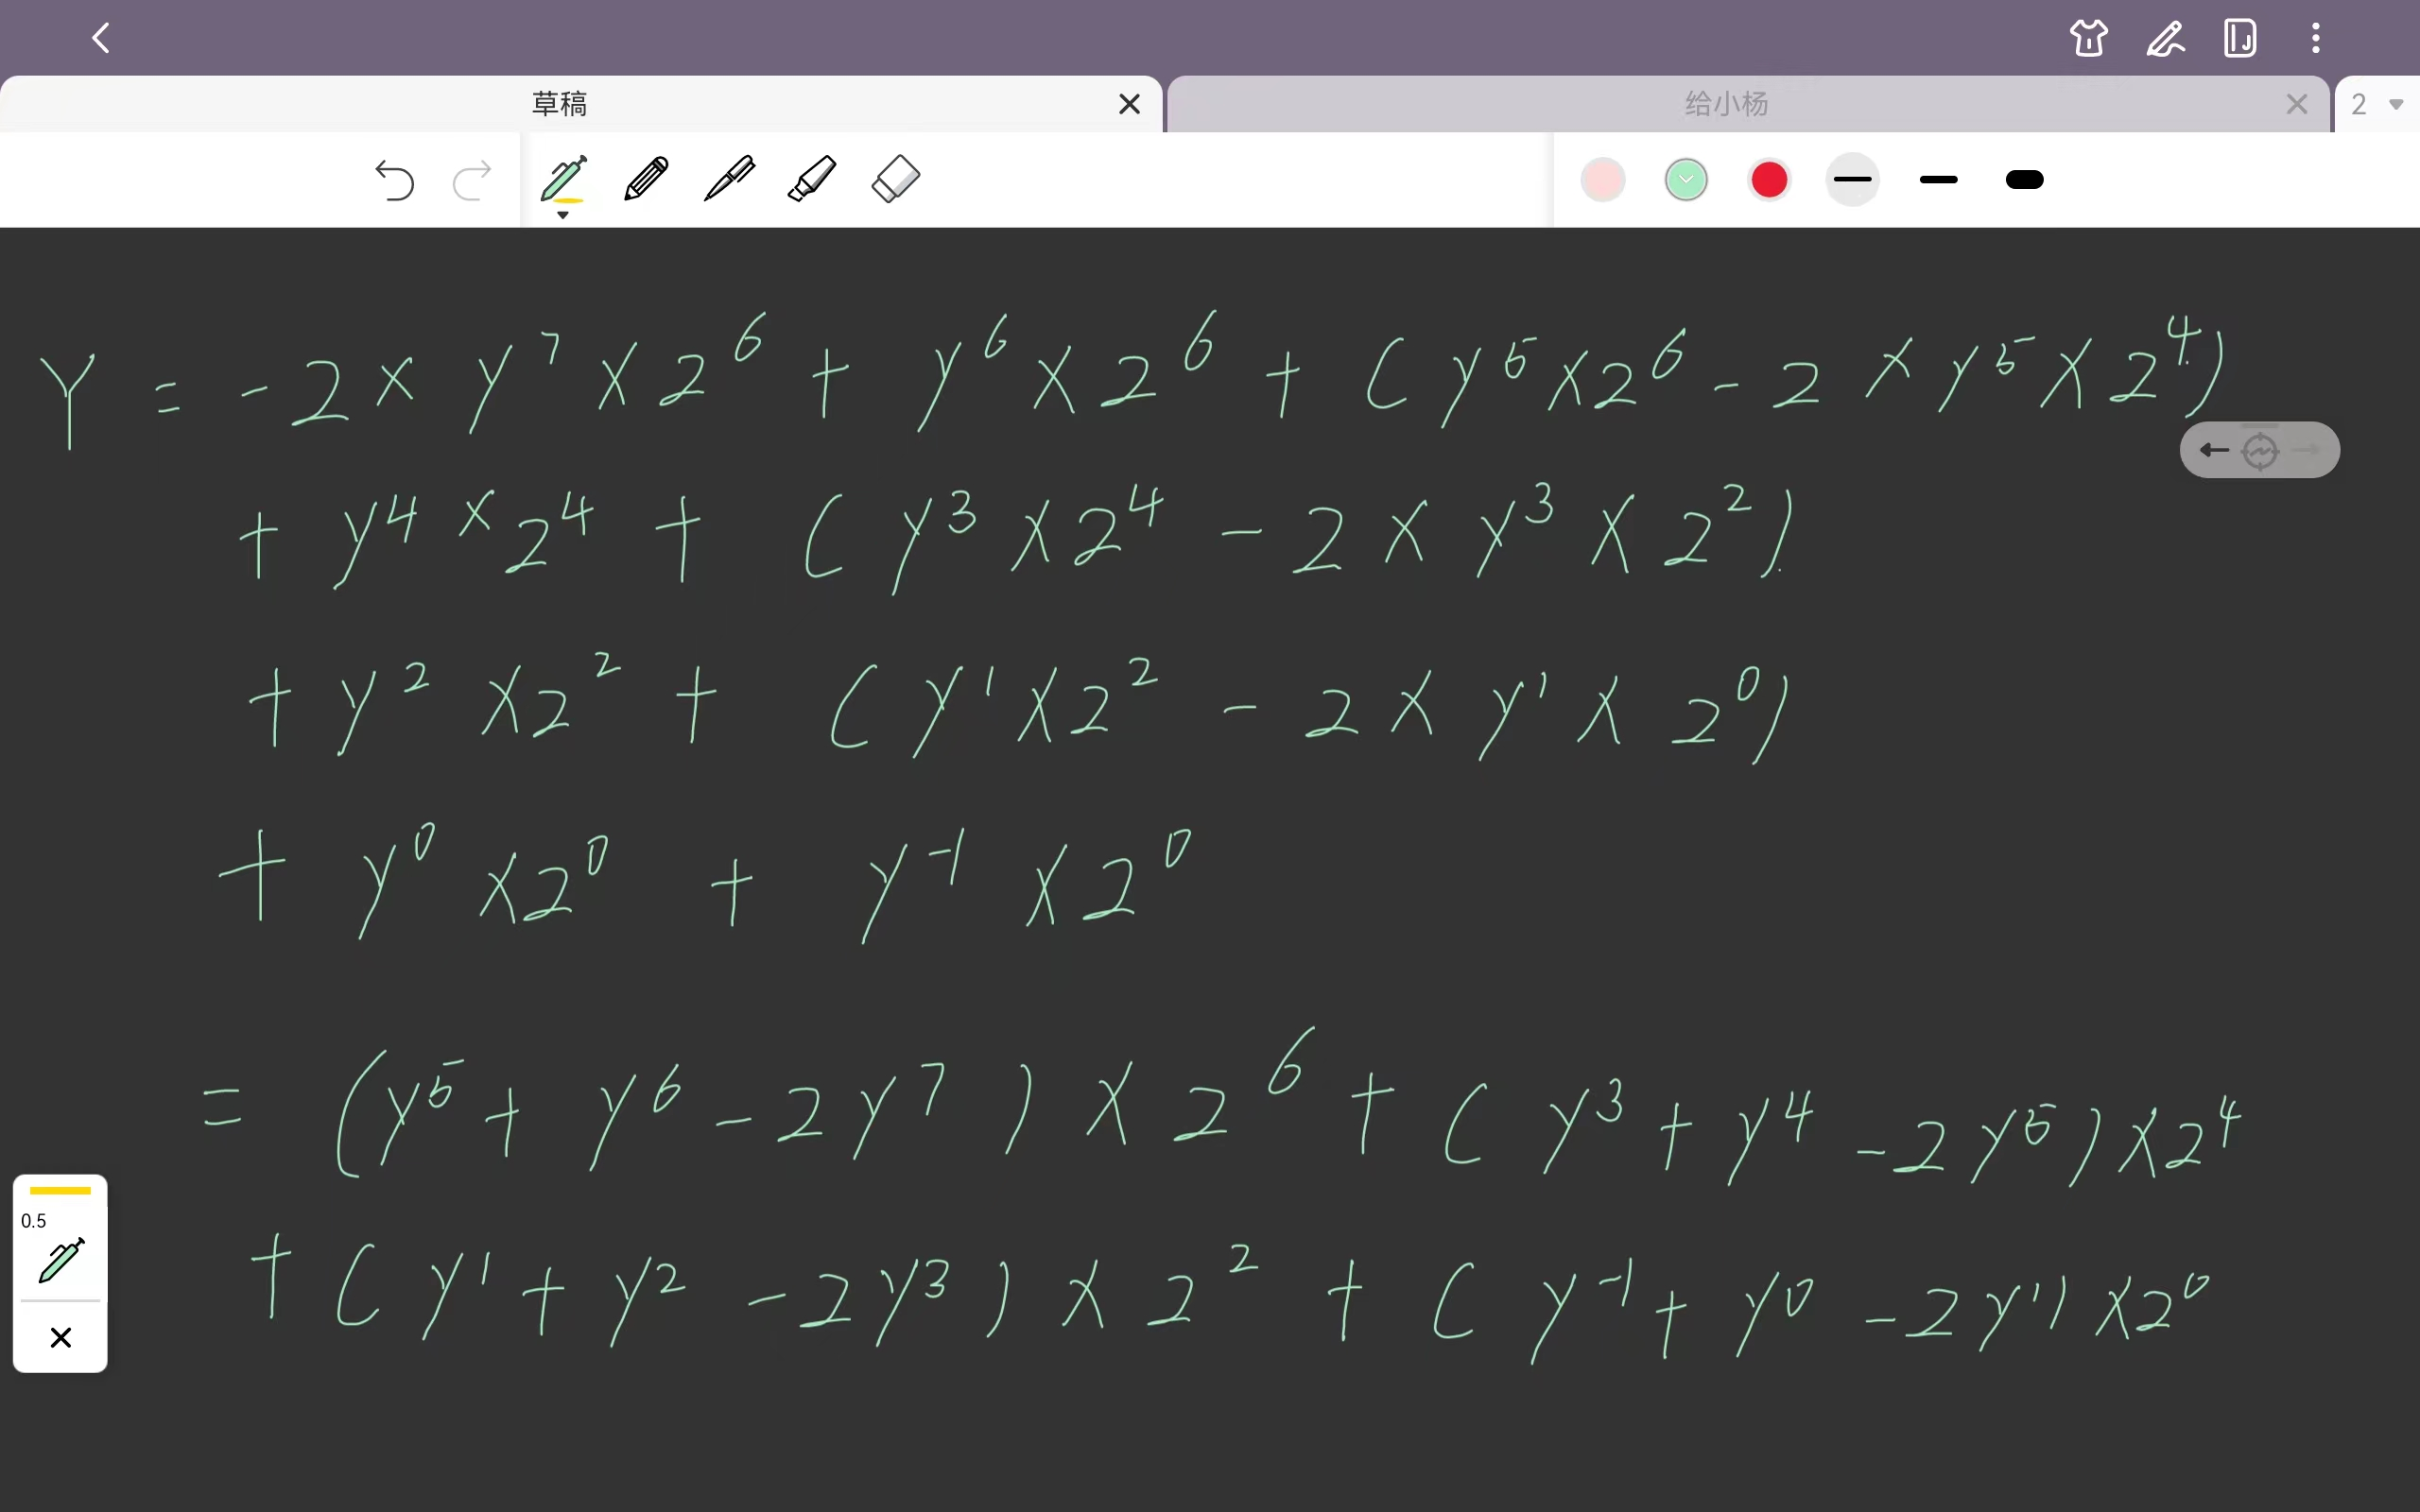 草稿 给小杨 2
Y = -2 × y⁷ × 2⁶ + y⁶ × 2⁶ + (y⁵ × 2⁶ - 2 × y⁵ × 2⁴)
+ y⁴ × 2⁴ + (y³ × 2⁴ - 2 × y³ × 2²)
+ y² × 2² + (y¹ × 2² - 2 × y¹ × 2⁰)
+ y⁰ × 2⁰ + y⁻¹ × 2⁰
= (y⁵ + y⁶ - 2y⁷) × 2⁶ + (y³ + y⁴ - 2y⁵) × 2⁴
0.5
+ (y¹ + y² - 2y³) × 2² + (y⁻¹ + y⁰ - 2y¹) × 2⁰